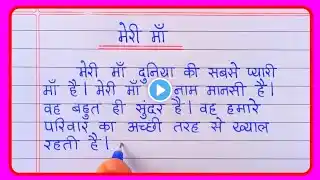 मेरी माँ
मेरी माँ दुनिया की सबसे प्यारी
माँ है। मेरी माँ नाम मानसी है।
वह बहुत ही सुंदर है। वह हमारे
परिवार का अच्छी तरह से ख्याल
रहती है।